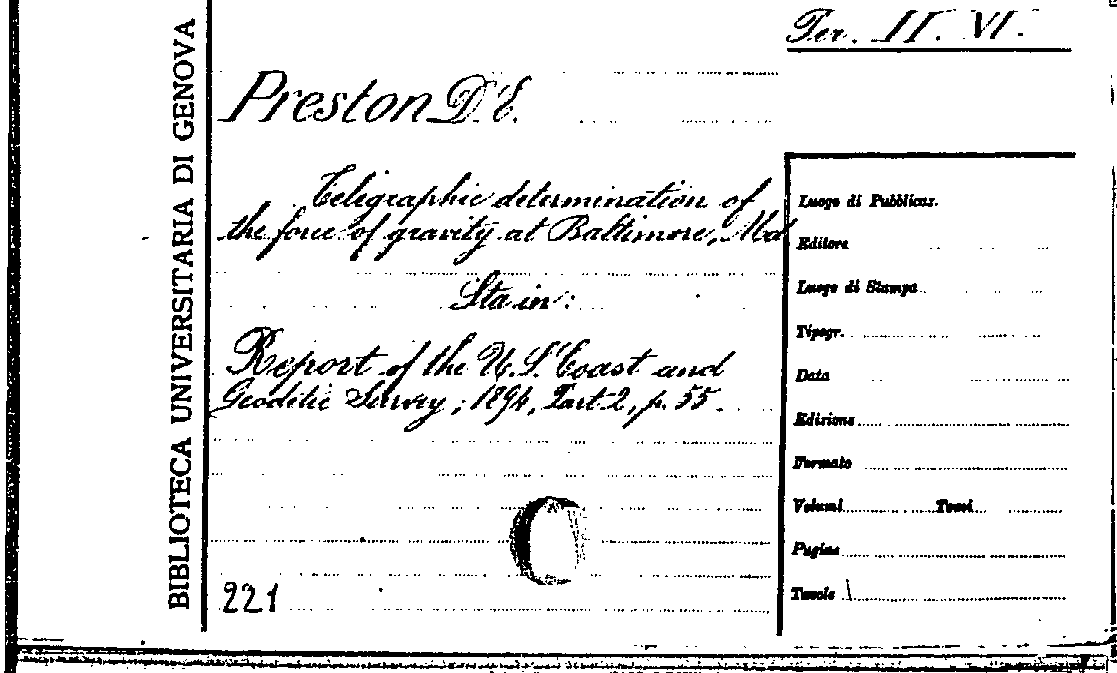 BIBLIOTECA UNIVERSITARIA DI GENOVA
Ter. II. VI.
Preston D. E.
Teligraphic determination of
the force of gravity at Baltimore, Md
Sta in:
Report of the U. S. Coast and
Geodetic Survey; 1894, Part. 2, p. 55.
221
Luogo di Pubblicaz.
Editore
Luogo di Stampa
Tipogr.
Data
Edizione
Formato
Volumi Tomi
Pagine
Tavole